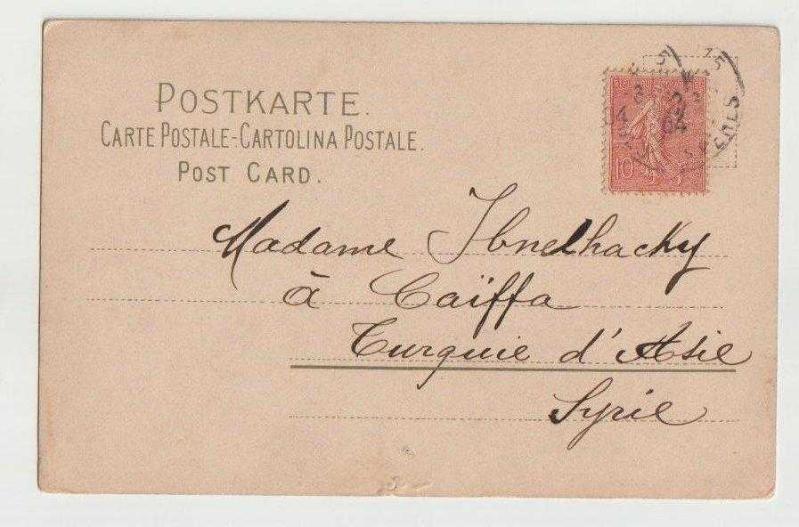 POSTKARTE.
CARTE POSTALE-CARTOLINA POSTALE.
POST CARD.
10
04
Madame Ibnelhacky
à Caïffa
Turquie d'Asie
Syrie